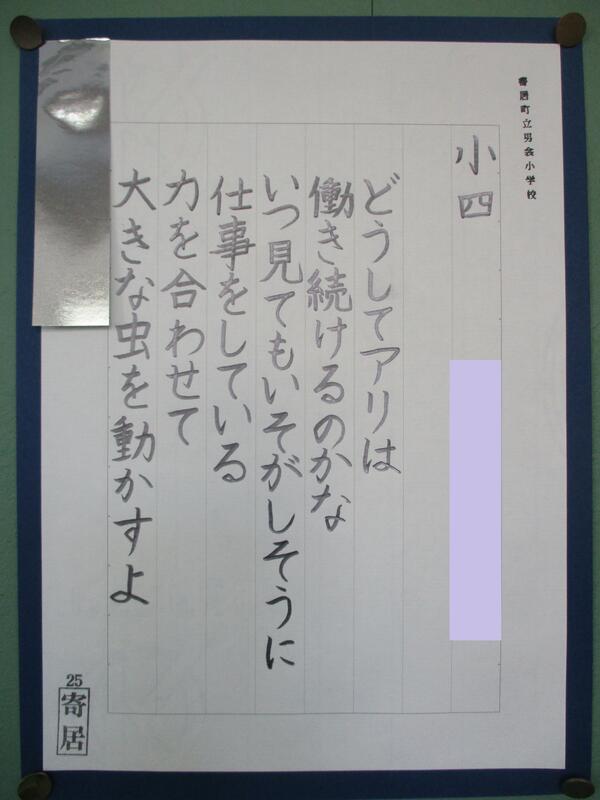 寄居町立男衾小学校
小四
どうしてアリは
働き続けるのかな
いつ見てもいそがしそうに
仕事をしている
力を合わせて
大きな虫を動かすよ
25
寄居